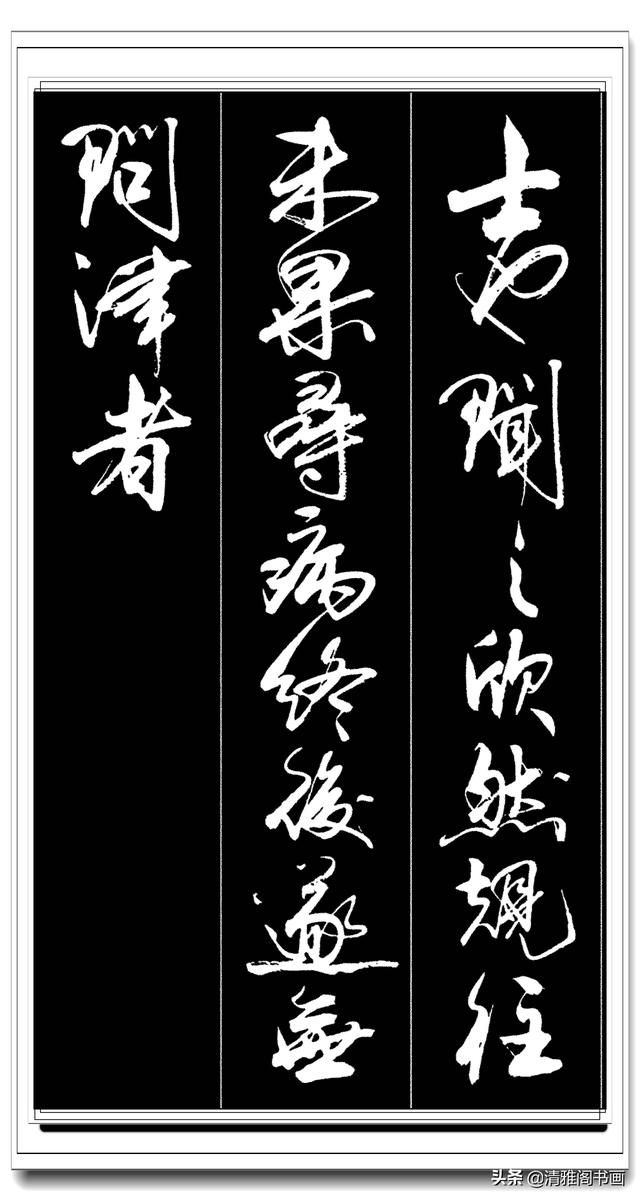 士也聞之欣然規往
未果尋病終後遂無
問津者
头条@清雅阁书画